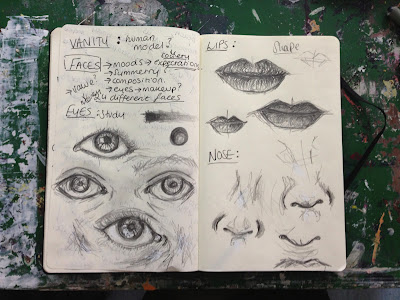 VANITY : human
model?
society
FACES → moods → expectations
→ symmerry?
→ composition.
→ eyes → makeup?
different faces
EYES : study
LIPS :
Shape
NOSE :